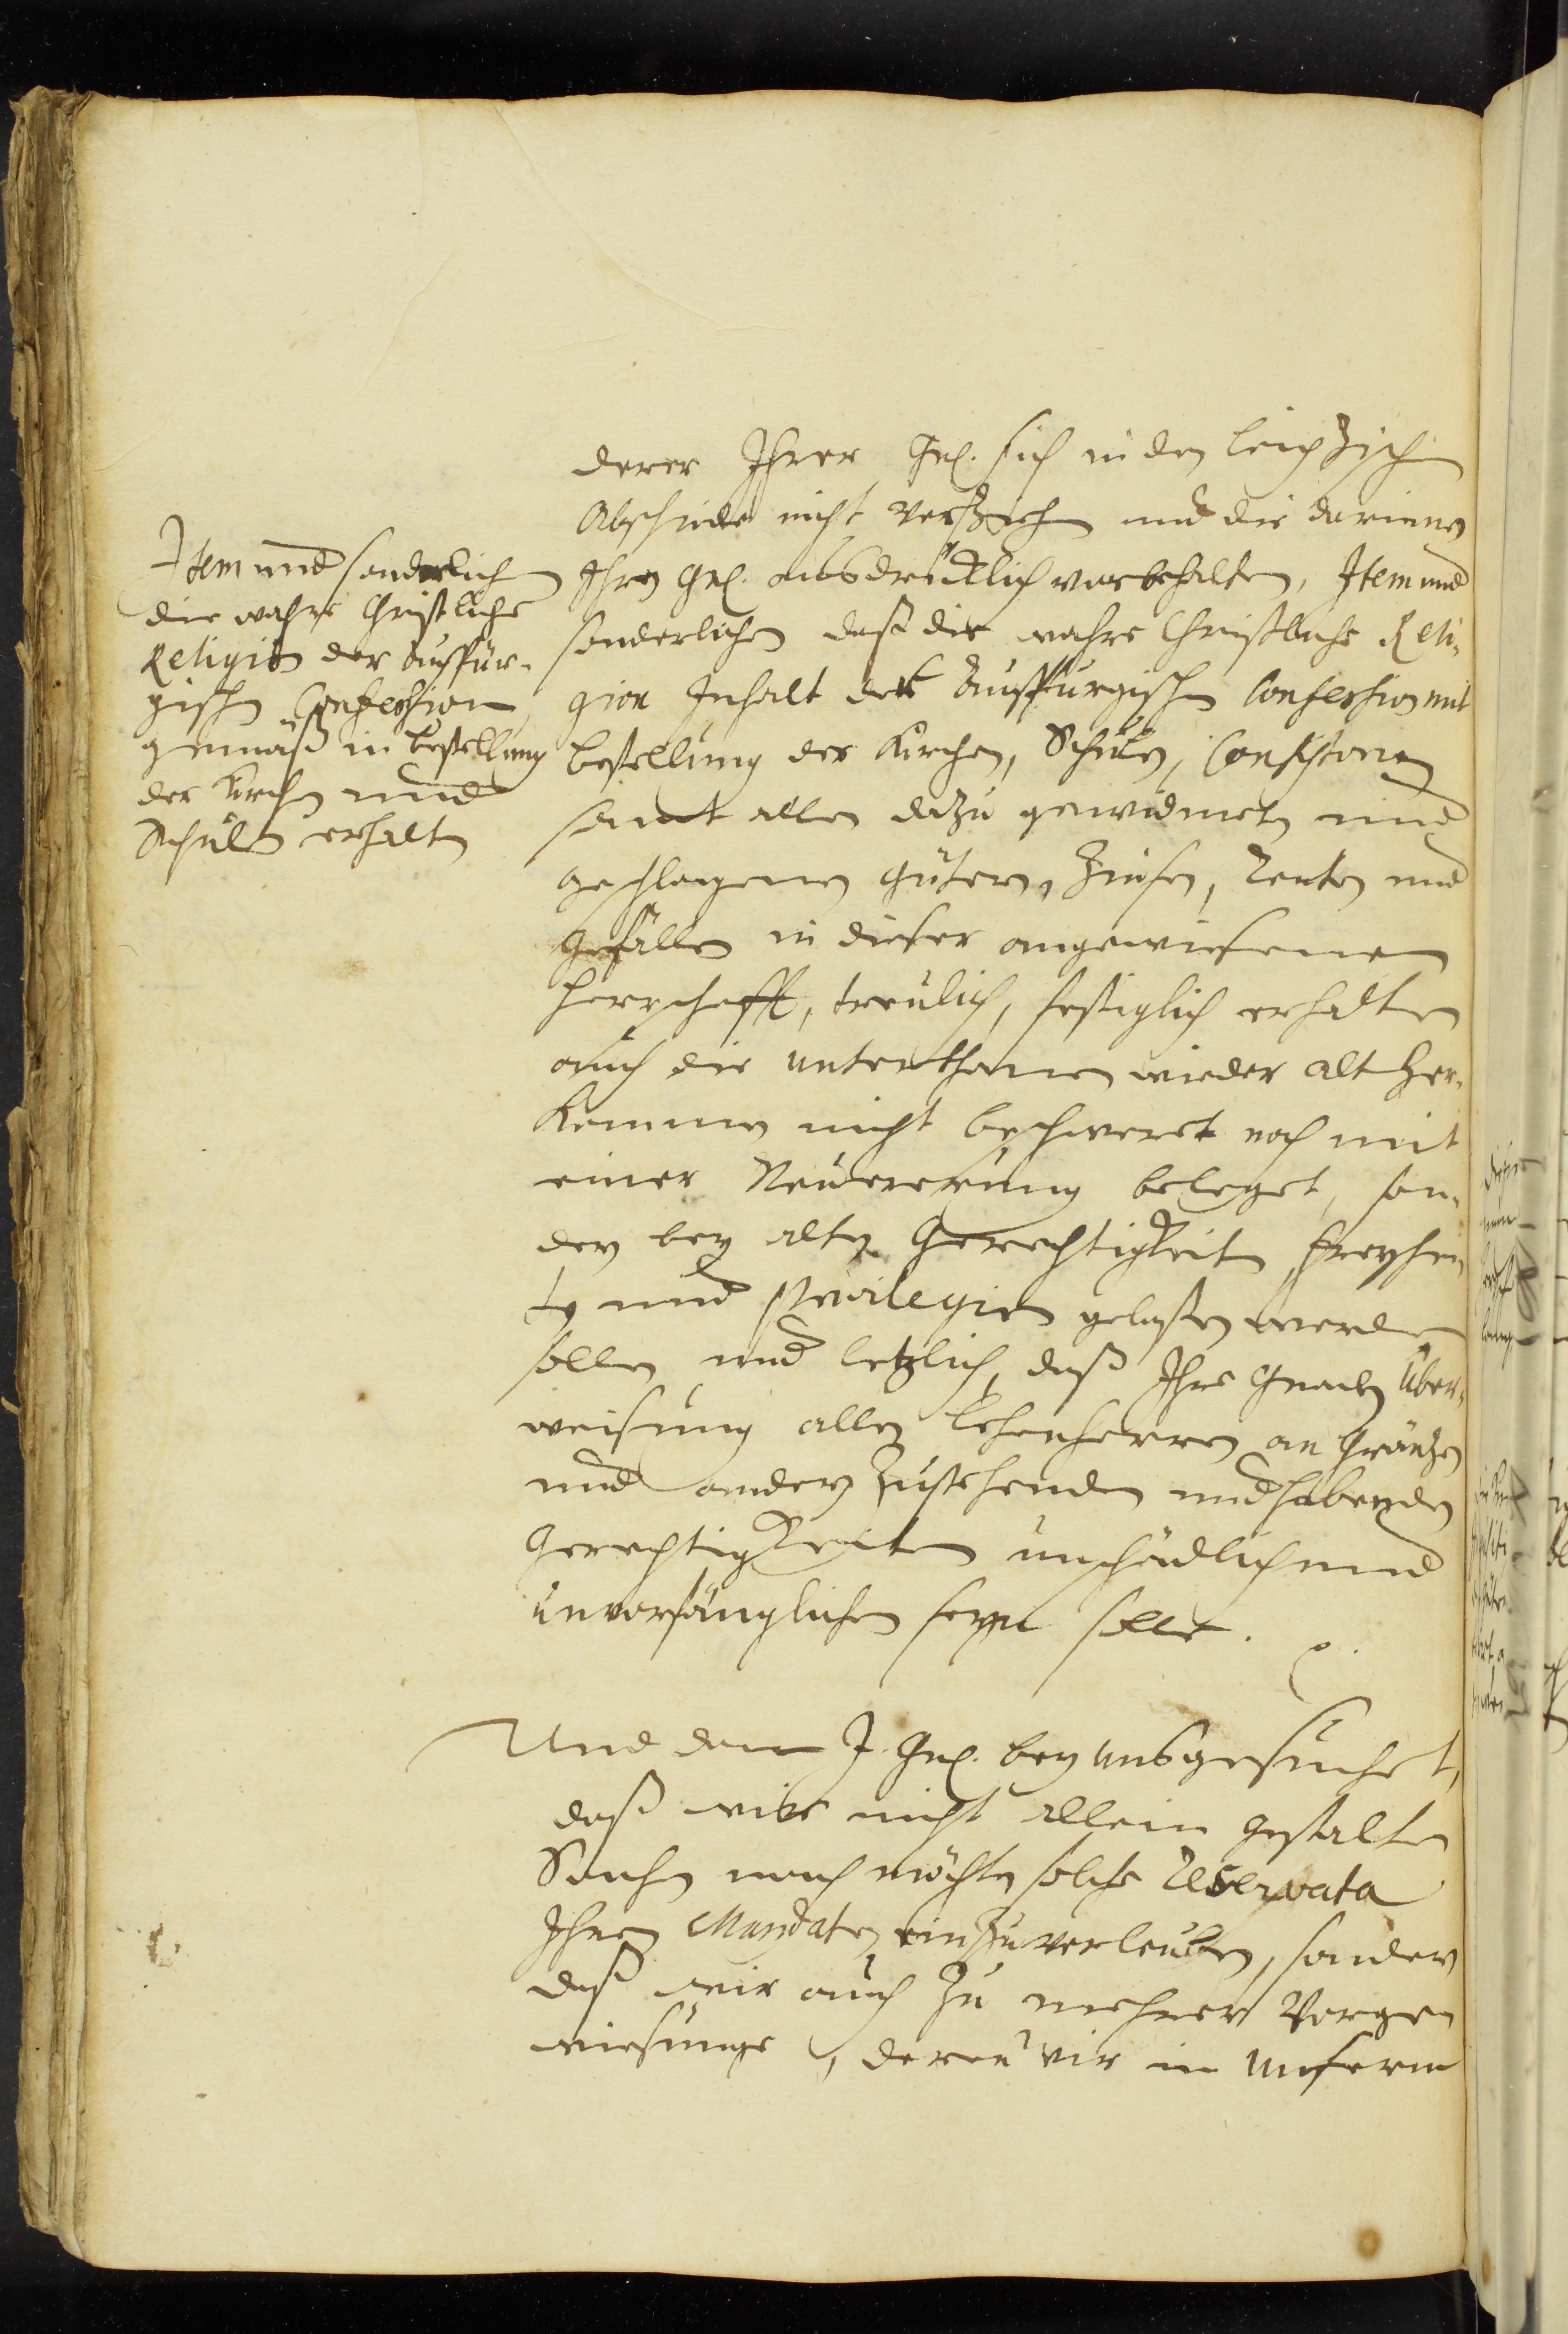 Item und sonderlich
die wahre Christliche
Religion der Auspür-
gischen Confession
gemäß in bestellung
der Kirchen und
Schulen erhalten
derer Ihrer Gn. sich in den Leipzisch
Abschiede nicht verziehen und die darinnen
Ihren Gn. ausdrücklich vorbehalten, Item und
sonderlichen daß die wahre Christliche Reli-
gion Inhalt der Auspurgischen Confession mit
bestellung der Kirchen, Schulen, Consistorien
samt allen dazu gewidmeten und
geschlagenen Gütern, Zinsen, Renten und
gefällen in dieser angewiesenen
Herrschafft, treulich, festiglich erhalten
auch die unterthanen wieder alt Her-
kommen nicht beschweret noch mit
einer Neuererung beleget, son-
dern bey alten Gerechtigkeiten freyhei-
ten und Privilegien gelaßen werden
sollen und letzlich, daß Ihre Gnaden Über-
weisung allen Lehenherren an Gräntzen
und andern zustehenden und habenden
Gerechtigkeiten unschädlich und
unvorfänglichen seyn solle.
Und dann I. Gn. bey uns gesuchet,
daß wir nicht allein gestalten
Sachen nach möchten solche Reservata
Ihren Mandaten einzuverleuben, sondern
daß wir auch zu mehrer Vergen
wiesunge, deren wir in unserm